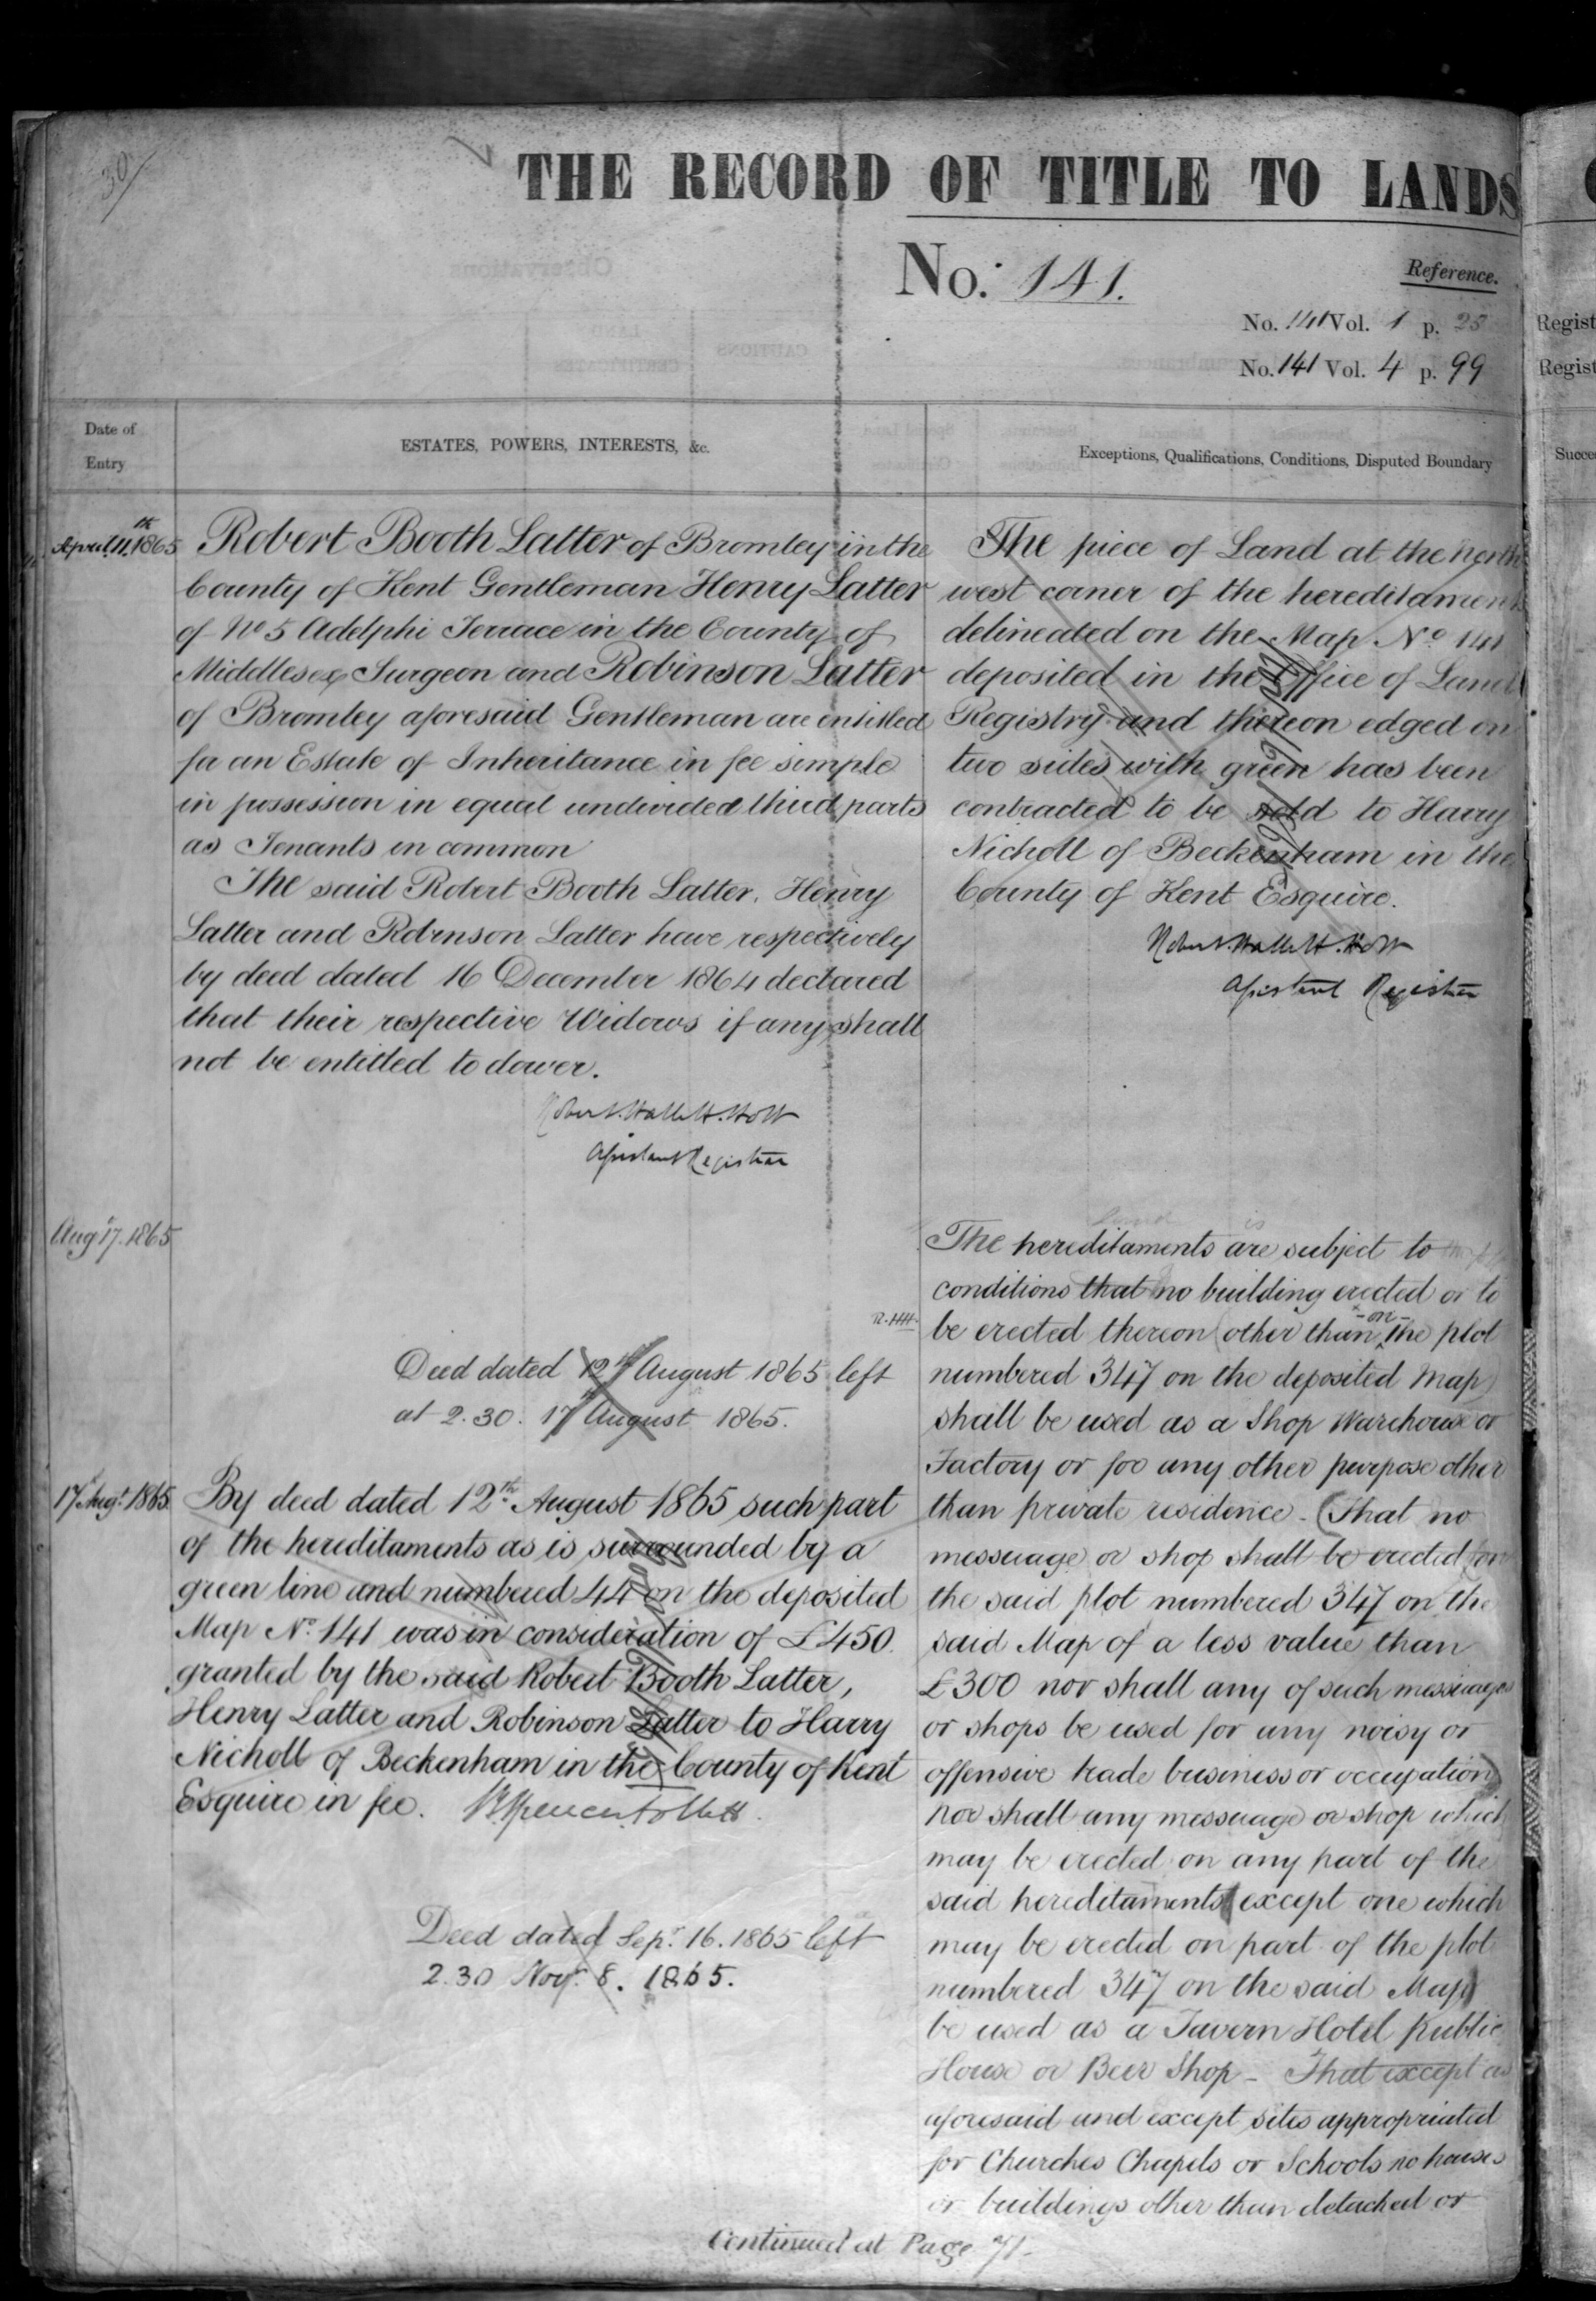 30
THE RECORD OF TITLE TO LANDS
No. 141.
Reference.
No. 141 Vol. 1 p. 25
No. 141 Vol. 4 p. 99
Regist
Regist
Date of
Entry
ESTATES, POWERS, INTERESTS, &c.
Exceptions, Qualifications, Conditions, Disputed Boundary
Succe
April 11th 1865
Robert Booth Latter of Bromley in the
County of Kent Gentleman Henry Latter
of No 5 Adelphi Terrace in the County of
Middlesex Surgeon and Robinson Latter
of Bromley aforesaid Gentleman are entitled
for an Estate of Inheritance in fee simple
in possession in equal undivided third parts
as Tenants in common
The said Robert Booth Latter, Henry
Latter and Robinson Latter have respectively
by deed dated 16 December 1864 declared
that their respective Widows if any shall
not be entitled to dower.
Robert Hallett Holt
Assistant Registrar
The piece of Land at the North
west corner of the hereditaments
delineated on the Map No 141
deposited in the Office of Land
Registry and thereon edged on
two sides with green has been
contracted to be sold to Harry
Nicholl of Beckenham in the
County of Kent Esquire.
Robert Hallett Holt
Assistant Registrar
Augt 17. 1865
The hereditaments are subject to
conditions that no building erected or to
R.HH.
be erected thereon (other than on the plot
numbered 347 on the deposited Map)
shall be used as a Shop Warehouse or
Factory or for any other purpose other
than private residence - (That no
messuage or shop shall be erected (on
the said plot numbered 347 on the
said Map of a less value than
£300 nor shall any of such messuages
or shops be used for any noisy or
offensive trade business or occupation)
nor shall any messuage or shop which
may be erected on any part of the
said hereditaments except one which
may be erected on part of the plot
numbered 347 on the said Map)
be used as a Tavern Hotel Public
House or Beer Shop - That except as
aforesaid and except sites appropriated
for Churches Chapels or Schools no houses
or buildings other than detached or
Deed dated 12th August 1865 left
at 2.30. 17 August 1865.
17 Augt 1865
By deed dated 12th August 1865 such part
of the hereditaments as is surrounded by a
green line and numbered 44 on the deposited
Map No. 141 was in consideration of £450.
granted by the said Robert Booth Latter,
Henry Latter and Robinson Latter to Harry
Nicholl of Beckenham in the County of Kent
Esquire in fee.
Deed dated Sepr. 16. 1865 left
2.30 Novr. 8. 1865.
Continued at Page 71.